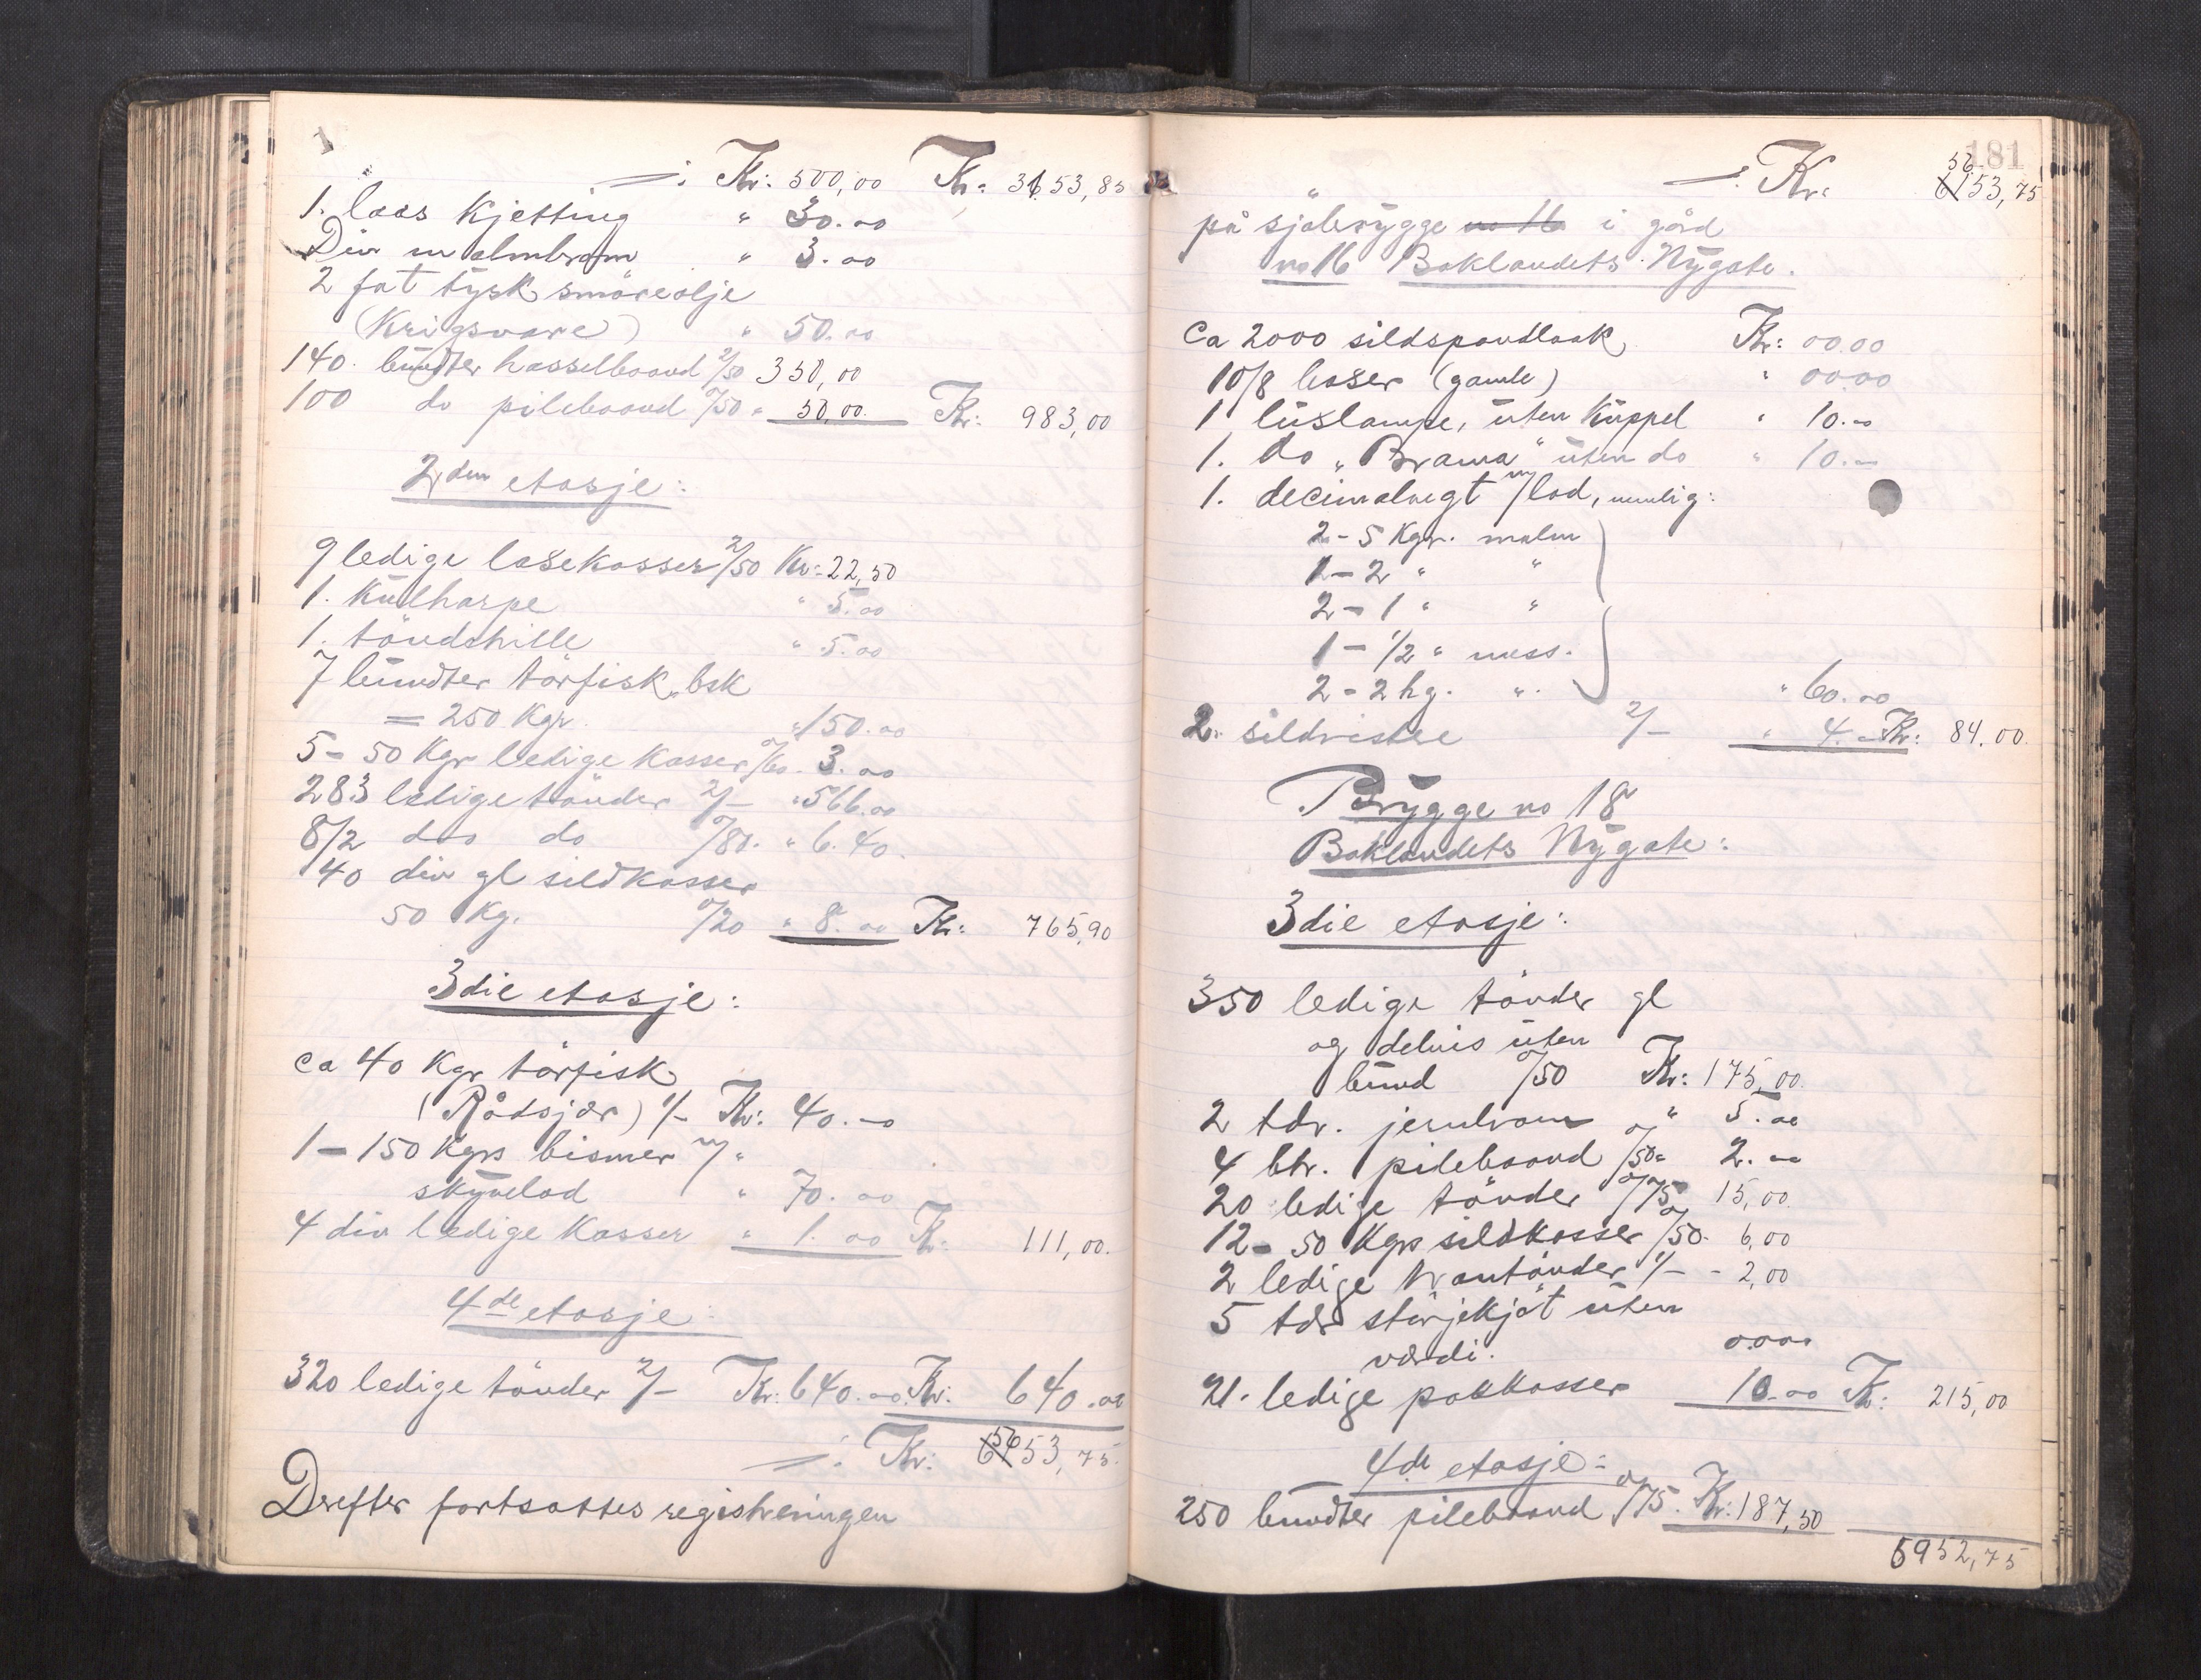 i Kr: 500,00 Kr: 3153,85
1. laas Kjetting " 30.00
Div malmkram " 3.00
2 fat tysk smöreolje
(Krigsvare) " 50.00
140. bundter hasselbaand 2/50 350,00
100 do pilebaand 0/50 " 50,00. Kr: 983,00
2den etasje:
9 ledige laxekasser 2/50 Kr: 22,50
1. Kulharpe " 5.00
1. töndehille " 5.00
7 bundter törfisk, bsk
= 250 Kgr. " 150.00
5 - 50 Kgr ledige Kasser 0/60. 3.00
283 ledige tönder 2/- " 566.00
8/2 dos do 0/80. " 6.40.
40 div gl sildkasser
50 Kg. 0/20 " 8.00 Kr: 765,90
3die etasje:
ca 40 Kgr törfisk
(Rådsjær) 1/- Kr: 40.-
1 - 150 Kgrs bismer m/
skyvelod " 70.00
4 div ledige Kasser " 1.00 Kr: 111,00.
4de etasje:
320 ledige tönder 2/- Kr: 640.00 Kr: 640.00
Kr: 5653,75.
Derefter fortsattes registreringen
181
Kr: 5653,75
på sjöbrygge no 16 i gård
no 16 Baklandets Nygate.
Ca 2000 sildspandlaak Kr: 00.00
10/8 baser (gamle) " 00.00
1 luslampe, uten Kuppel " 10.-
1. do "Brama" uten do " 10.-
1. decimalvegt m/lod, nemlig:
2 - 5 Kgr. malm
1 - 2 " "
2 - 1 " "
1 - 1/2 " mess.
2 - 2 hg. ". " 60.00
2. sildrister 2/- " 4.- Kr: 84.00.
Brygge no 18
Baklandets Nygate:
3die etasje:
350 ledige tönder gl
og delvis uten
bund 0/50 Kr: 175,00.
2 tdr. jernkram " 5.00
4 btr. pilebaand 0/50 " 2.00
20 ledige tönder 0/75 15,00.
12 - 50 Kgrs sildkasser 0/50. 6,00
2 ledige trantönder 1/- - 2,00
5 tdr störjekjöt uten
værdi. 0.000
21. ledige pakkasser 10.00 Kr: 215,00
4de etasje:
250 bundter pilebaand 0/75. Kr: 187,50
5952,75